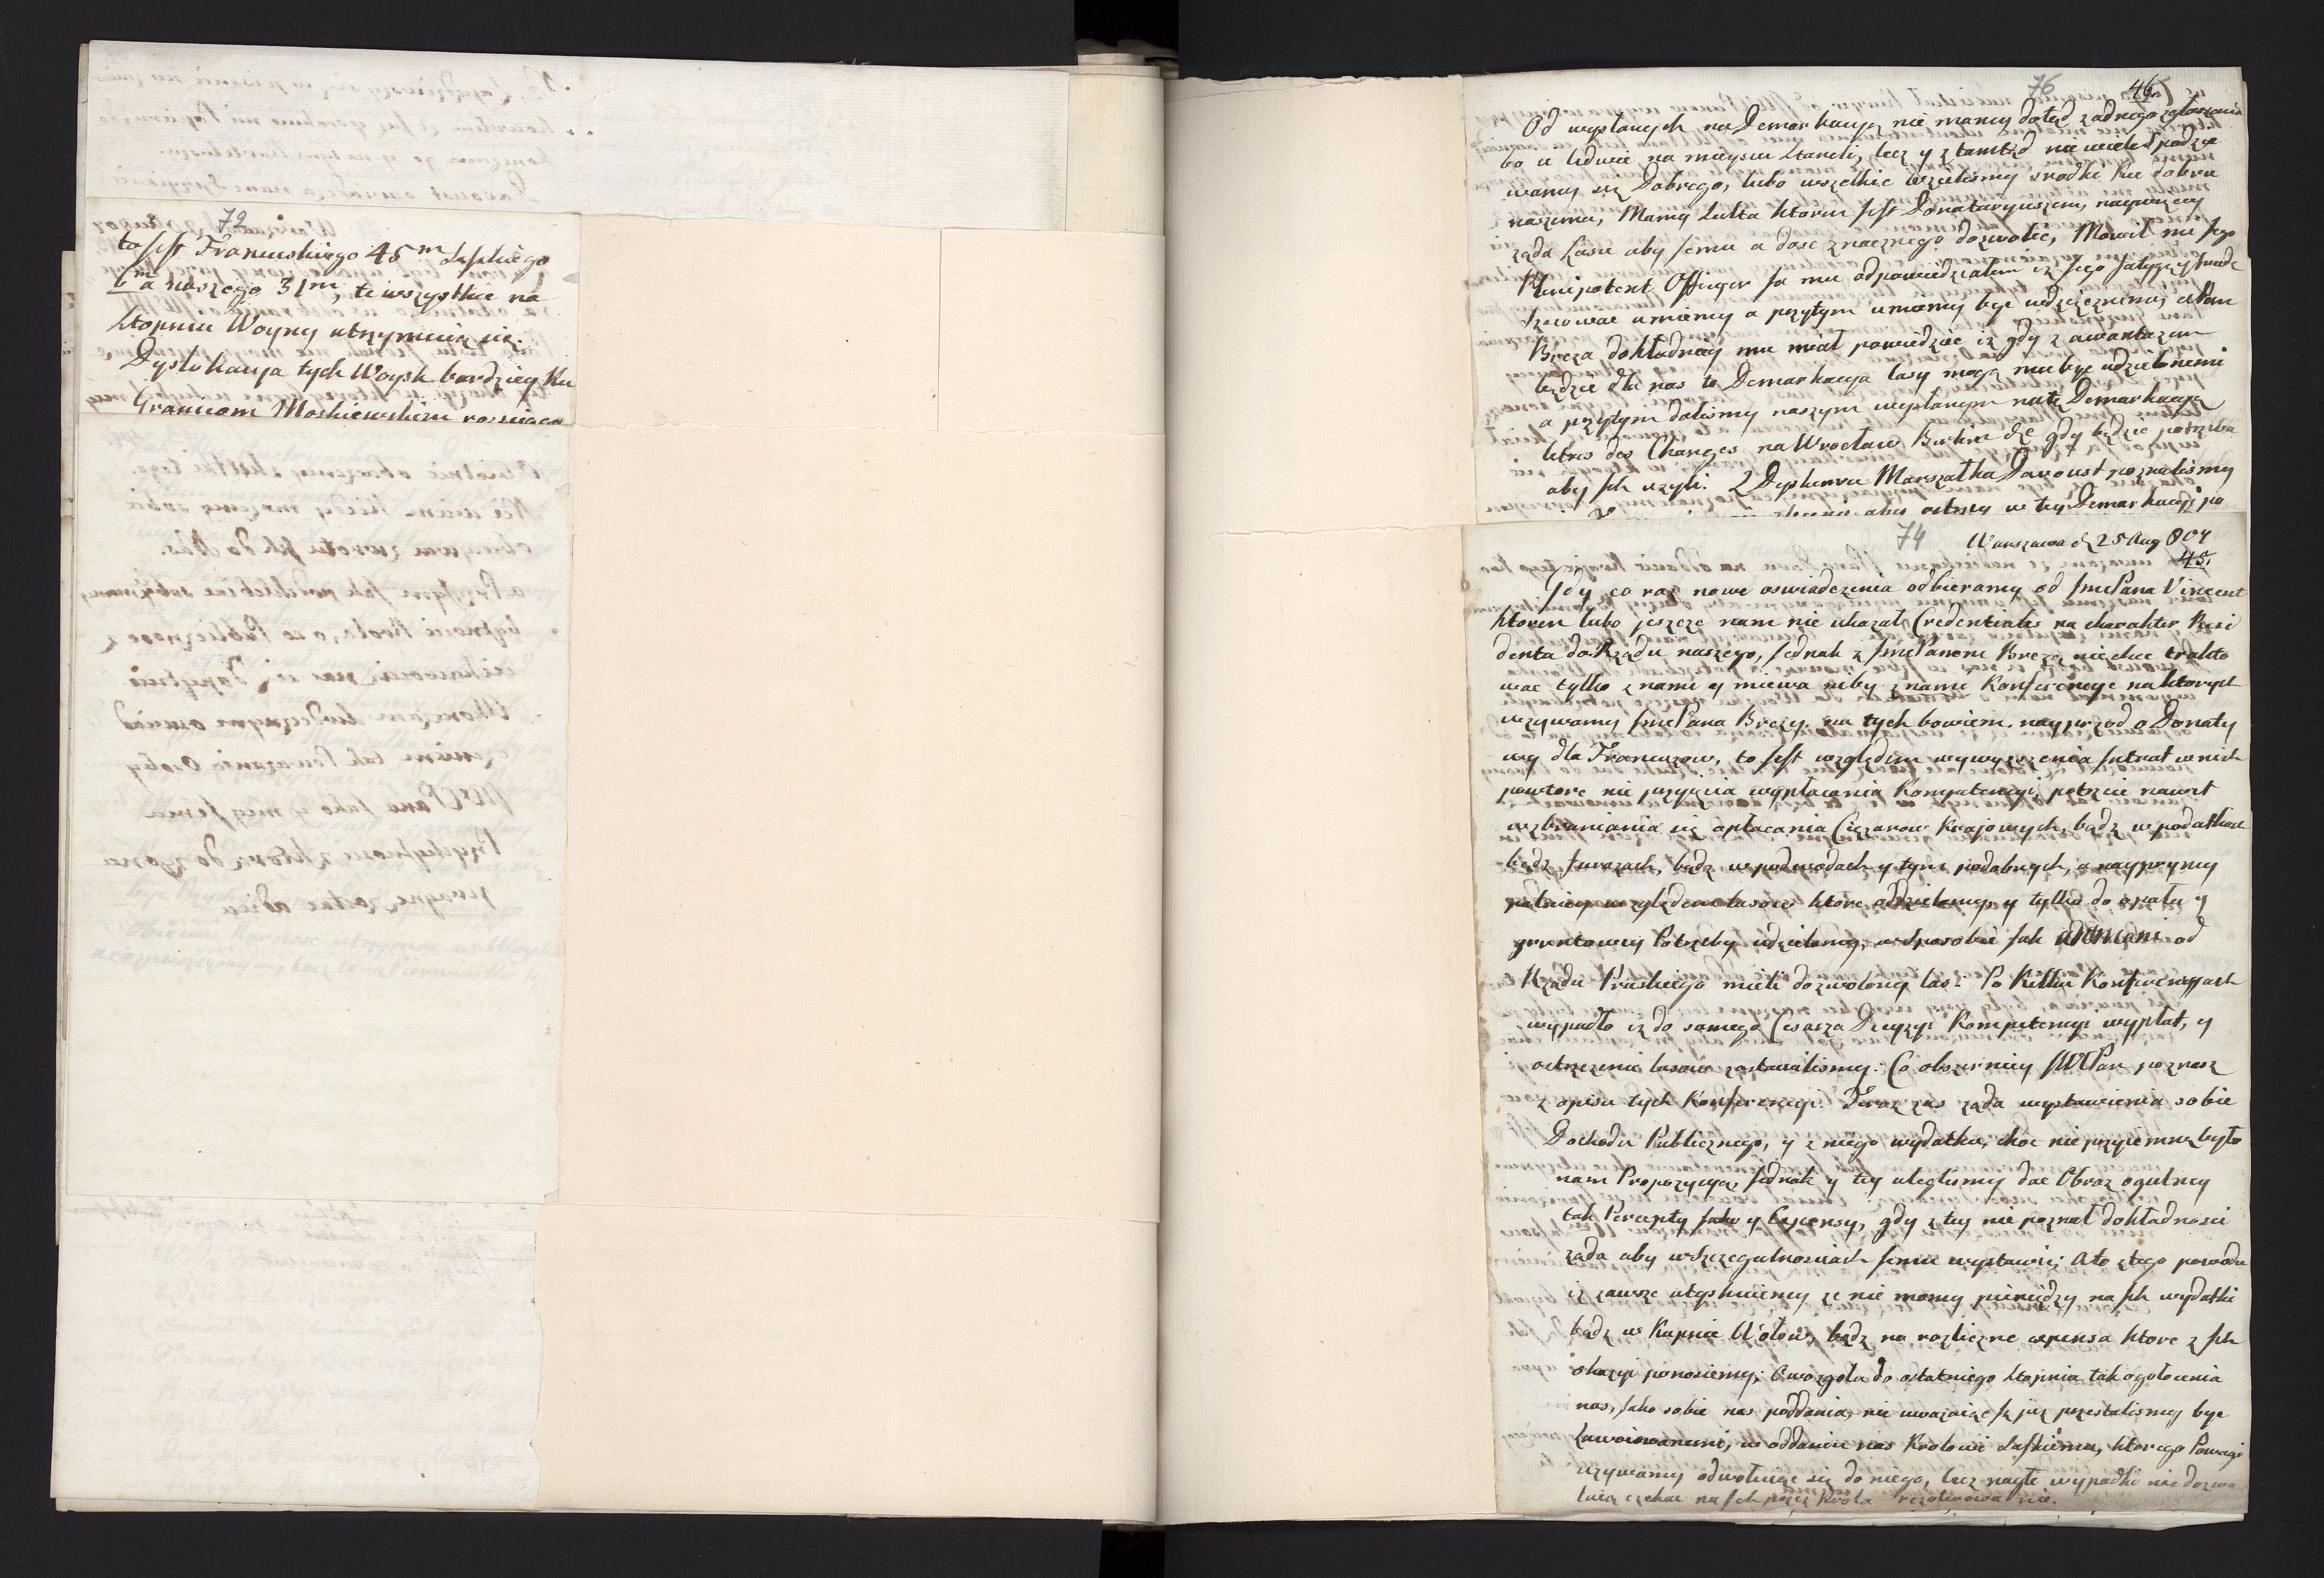 72
to jest Francuskiego 45m Saskiego
6m a naszego 31m, te wszystkie na
stopniu Woyny utrzymuią się.
Dyslokacya tych Woysk bardziey Ku
Granicom Moskiewskim rosciąga
76 46.
Od wysłanych na Demarkacyą nie mamy dotąd zadnego
bo u ledwie na mieyscu staneli, lecz y z tamtąd nie wiele spodzie
wamy się Dobrego, lubo wszelkie wzielismy srodki Ku dobru
naszemu, Mamy Sulta ktoren jest Donataryuszem, naywięcey
ząda Lasu aby jemu a dosc znacznego dozwolic, Mowił mi jego
Plenipotent Officyer ja mu odpowiedziałem iz jego fatygę y trudy
szacowac umiemy a przytym umiemy byc wdzięcznemi, a Pan
Breza dokładniey mu miał powiedziec iz gdy z awantazem
będzie dla nas ta Demarkacya lasy mogą mu byc udzielonemi
a przytym dalismy naszym wysłanym na tę Demarkacyą
letres des Changes na Wrocław Berlin &c gdy będzie potrzeba
aby ich uzyli. Z Dyskursu Marszałka Davoust poznalismy
abu ostrzy w tey Demarkacyi po
74 Warszawa d. 25 Aug 807
45.
Gdy co raz nowe oswiadczenia odbieramy od JmcPana Vincent
ktoren lubo jeszcze nam nie ukazał Credentiales na charakter Resi
denta do Rządu naszego, jednak z JmcPanem Brezą nie chce trakto
wac tylko z nami y miewa niby z nami Konferencye na ktorych
wzywamy JmcPana Brezy. na tych bowiem nayprzod o Donaty
wy dla Francuzow, to jest względem wywyzszenia Intrat w nich
powtore nie przyięcia wypłacania Kompetencyi, potrzecie nawet
wzbraniania się opłacania Cięzarow Krajowych, bądz w podatkach
bądz furazach, bądz w podwodach y tym podobnych, a nayprzymy
względem Lasow ktore oddzielamy y tylko do opału y
gruntowey Potrzeby udzielamy, w sposobie jak od
Rządu Pruskiego mieli dozwolony las: Po Kilku Konferencyach
wypadło iz do samego Cesarza Decyzyi Kompetencyi wypłat, y
ostrzezenie lasow zostawilismy: Co obszerniey JWPan poznasz
z opisu tych Konferencyi. Teraz zas ząda wystawienia sobie
Dochodu Publicznego, y z niego wydatku, choc nieprzyiemną było
nam Propozycyą, jednak y tey uleglismy dac Obraz ogulney
tak Percepty jako y Expensy, gdy z tey nie poznał dokładnosci
ząda aby w Szczegulnosciach jemu wystawic; Ato z tego powodu
iz zawsze utyskuiemy ze nie mamy pieniędzy na ich wydatki
bądz w Kupnie Wołow, bądz na rozliczne expensa ktore z ich
okazyi ponosiemy; Owozgoła do ostatniego stopnia tak ogołocenia
nas, jako sobie nas poddania, nie uwazaiąc iz juz przestalismy byc
Zawoiowanemi, w oddaniu nas Krolowi Saskiemu, ktorego Powagi
uzywamy odwołuiąc się do niego, lecz nagłe wypadki nie dozwa
laią czekac na ich przez Krola rezolwowanie.